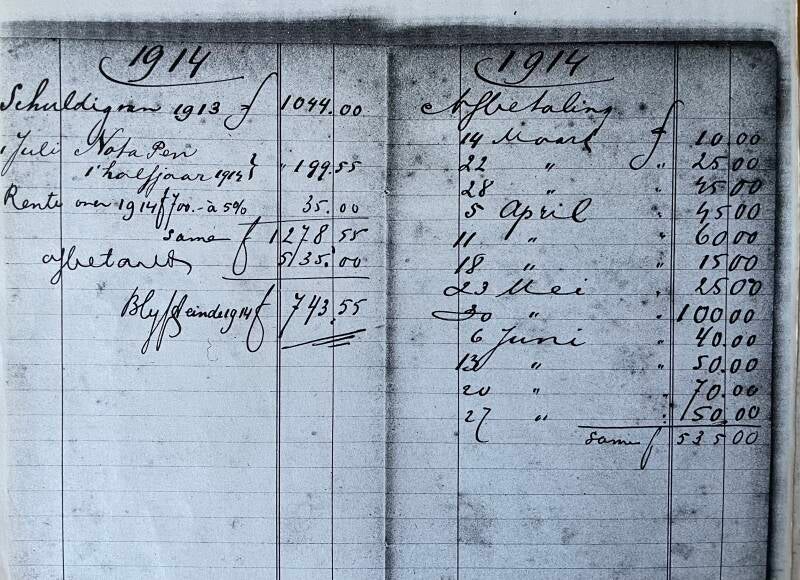 1914
Schuldig van 1913 f 1044.00
1 Juli Nota Pen
1e halfjaar 1914 " 199.55
Rente over 1914 f 700.- à 5% 35.00
same f 1278.55
afbetaald 535.00
Blyft einde 1914 f 743.55
1914
Afbetaling
14 Maart f 10.00
22 " " 25 00
28 " " 45 00
5 April " 45 00
11 " " 60.00
18 " " 15 00
23 Mei " 25 00
30 " " 100.00
6 Juni " 40.00
13 " " 50.00
20 " 70.00
27 " " 50.00
same f 535 00